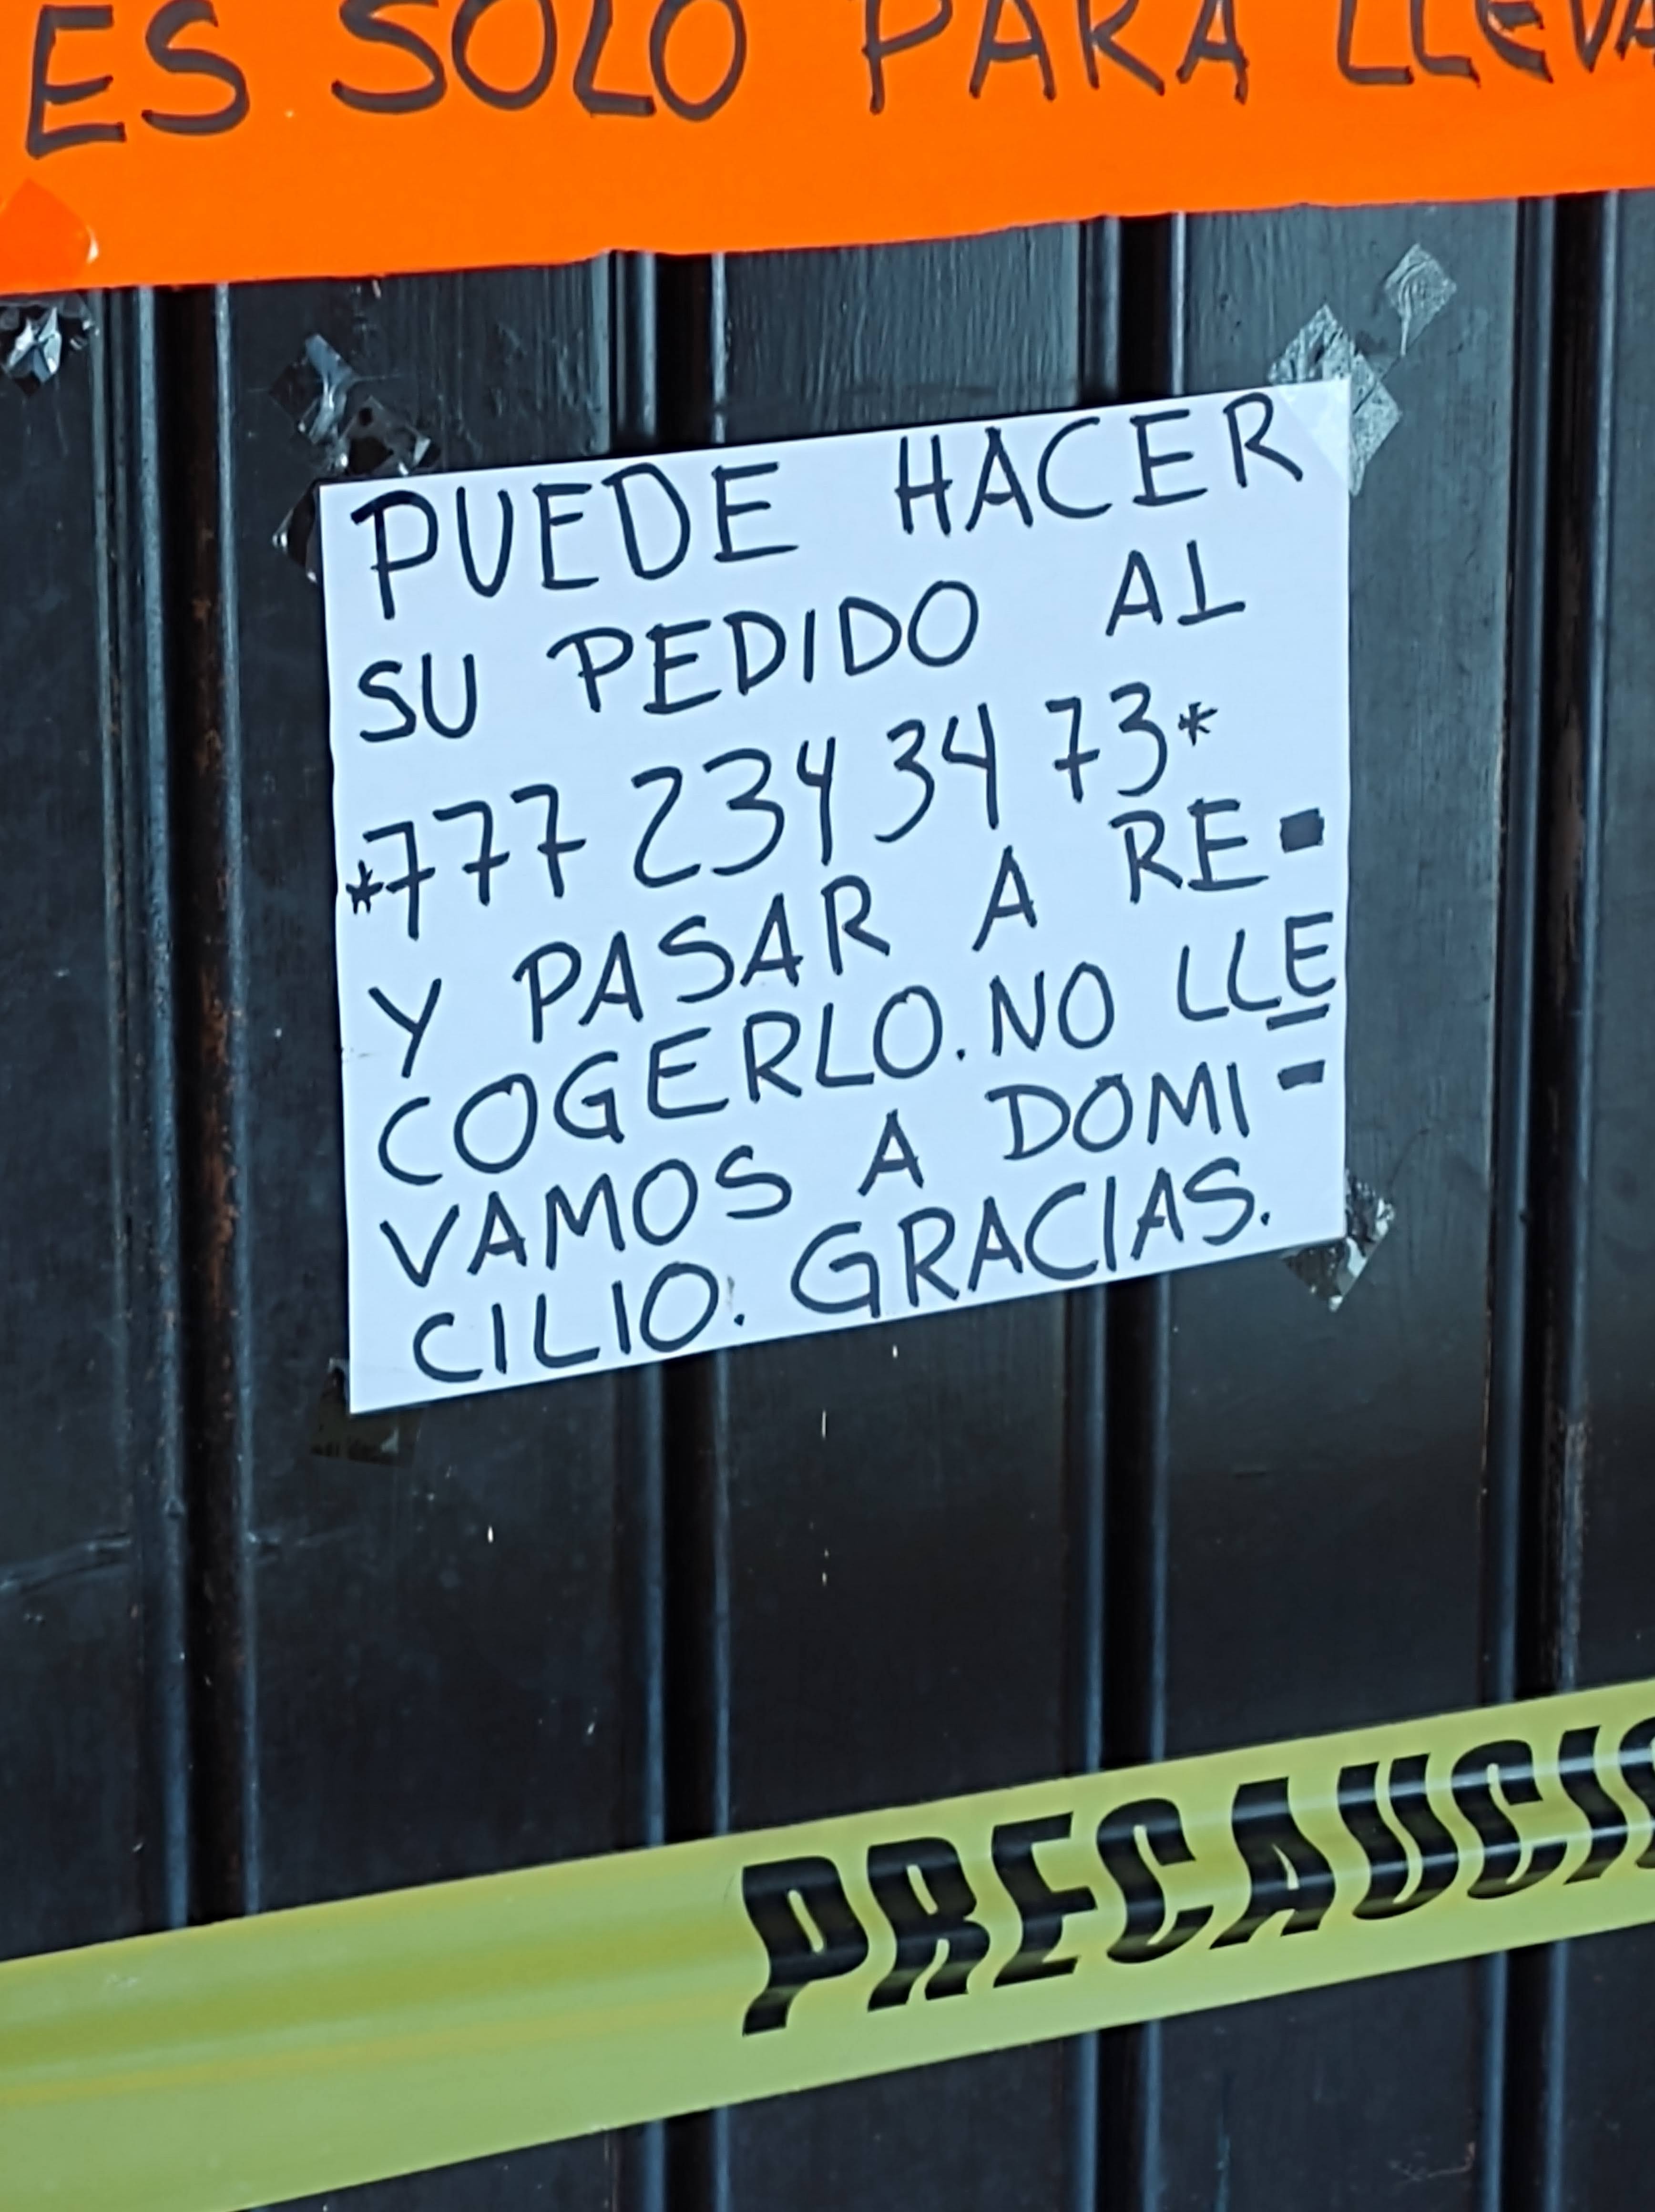 ES SOLO PARA LLEVA
PUEDE HACER
SU PEDIDO AL
*777 234 34 73*
Y PASAR A RE-
COGERLO. NO LLE
VAMOS A DOMI-
CILIO. GRACIAS.
PRECAUCIÓ